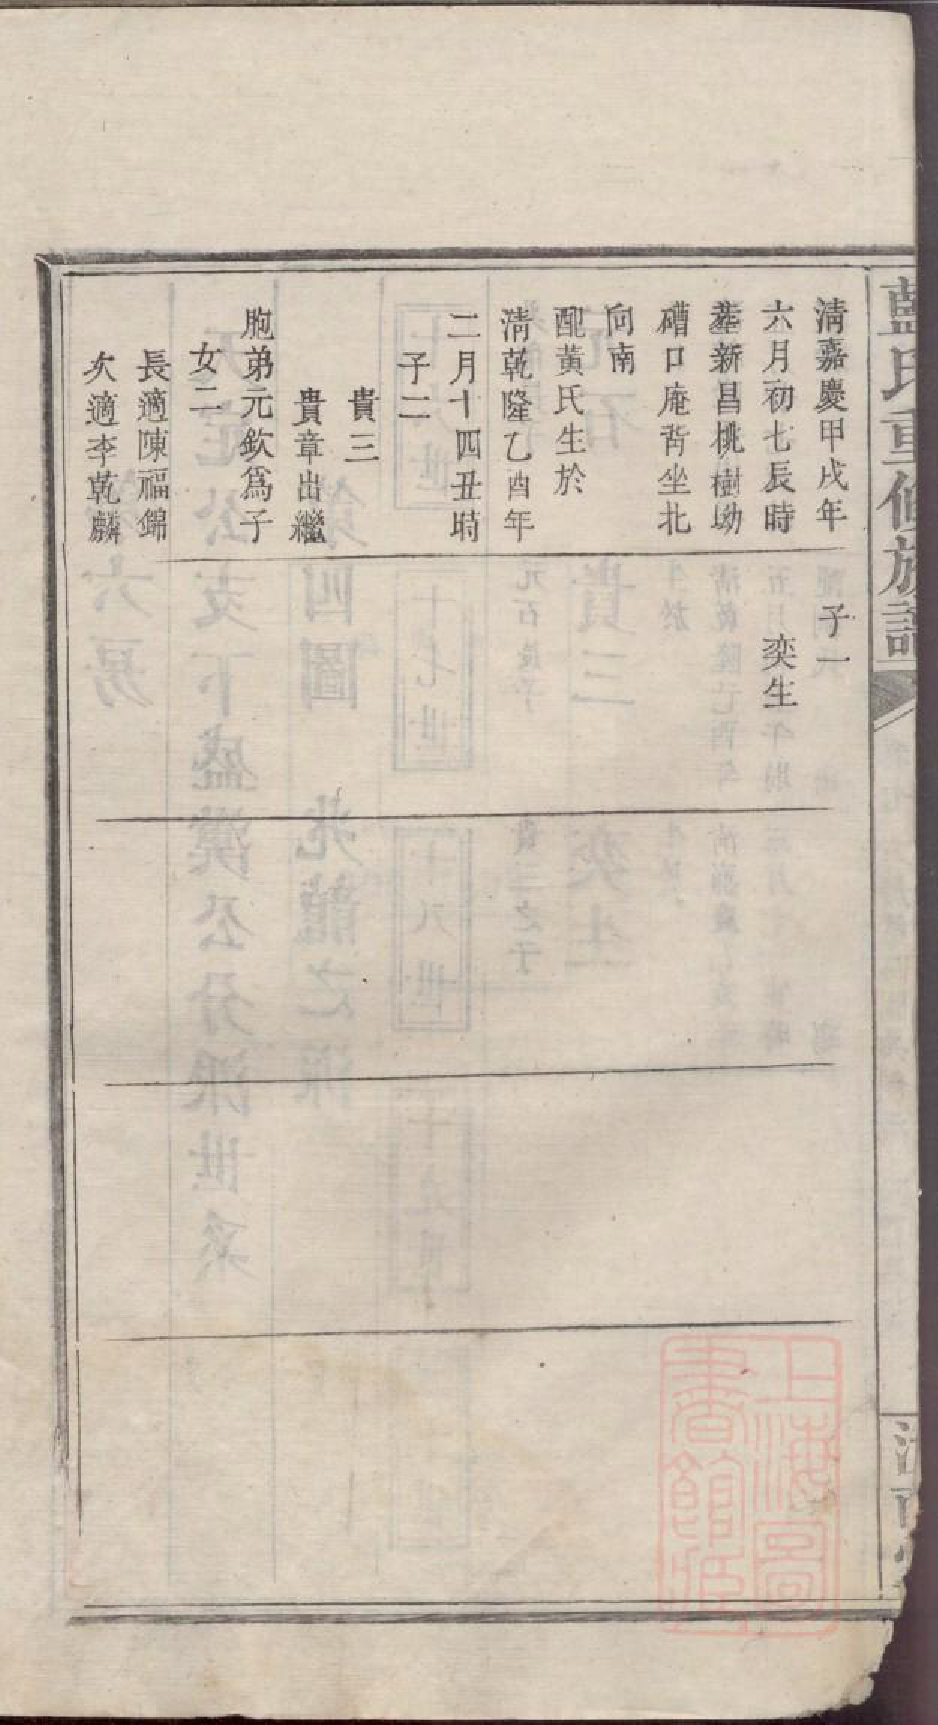 藍氏重修族譜
清嘉慶甲戌年
六月初七辰時
塟新昌桃樹坳
磆口庵背坐北
向南
配黃氏生於
清乾隆乙酉年
二月十四丑時
子二
貴三
貴章出繼
胞弟元欽爲子
女二
長適陳福錦
次適李乾麟
子一
奕生
上海圖
書館藏